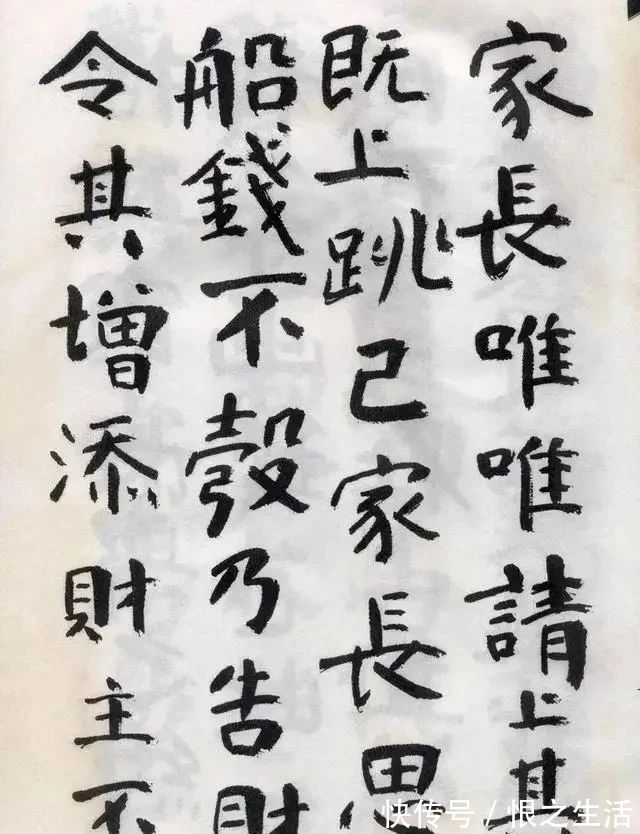 家長唯唯請上其
既上跳己家長思
船錢不彀乃告財
令其增添財主不
快传号/恨之生活